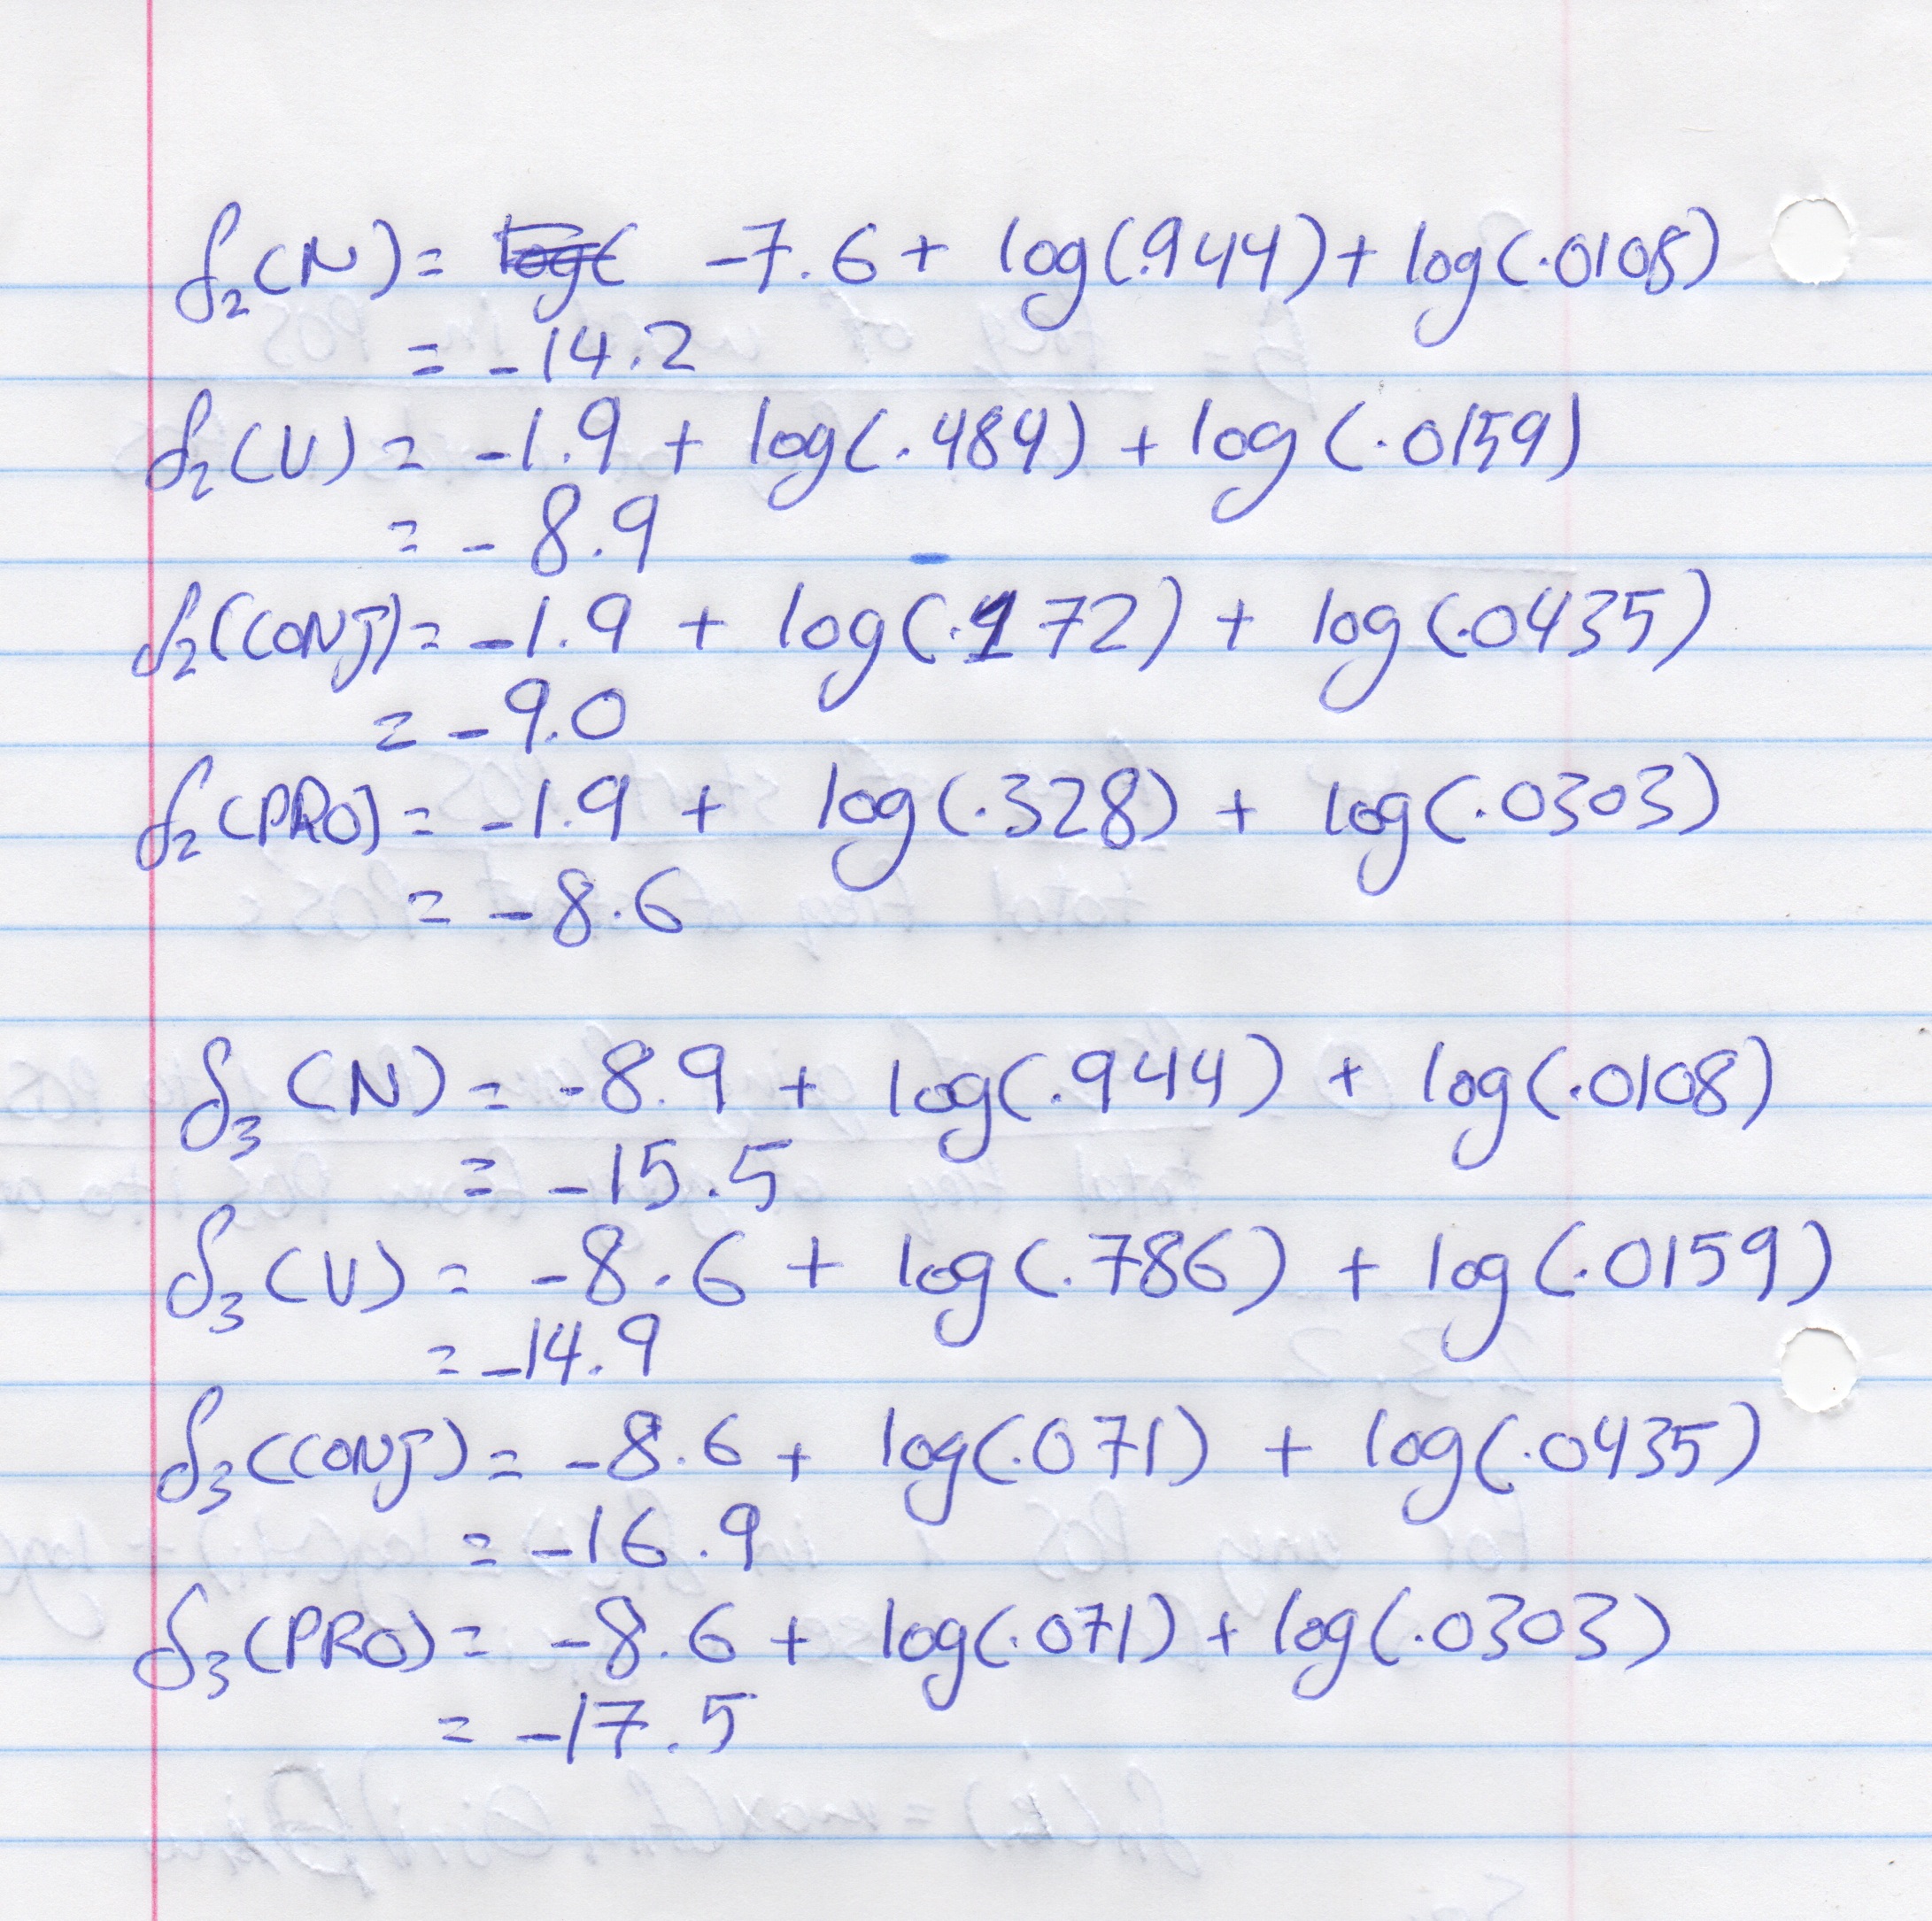 δ₂(N) = -7.6 + log(.944) + log(.0108)
= -14.2
δ₂(V) = -1.9 + log(.484) + log(.0159)
= -8.9
δ₂(CONJ) = -1.9 + log(.172) + log(.0435)
= -9.0
δ₂(PRO) = -1.9 + log(.328) + log(.0303)
= -8.6
δ₃(N) = -8.9 + log(.944) + log(.0108)
= -15.5
δ₃(V) = -8.6 + log(.786) + log(.0159)
= -14.9
δ₃(CONJ) = -8.6 + log(.071) + log(.0435)
= -16.9
δ₃(PRO) = -8.6 + log(.071) + log(.0303)
= -17.5